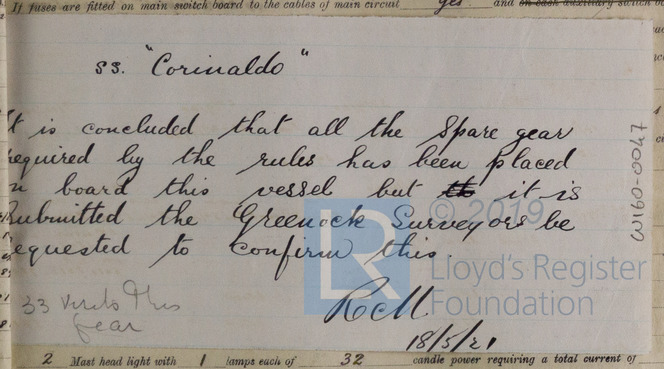 If fuses are fitted on main switch board to the cables of main circuit yes and on each auxiliary switch
ss. "Corinaldo"
It is concluded that all the Spare gear
required by the rules has been placed
n board this vessel but th it is
Submitted the Greenock Surveyors be
equested to confirm this.
RCM
18/5/21
33 visits this
year
W160-0047
© 2019
LR
Lloyd's Register
Foundation
2 Mast head light with 1 lamps each of 32 candle power requiring a total current of